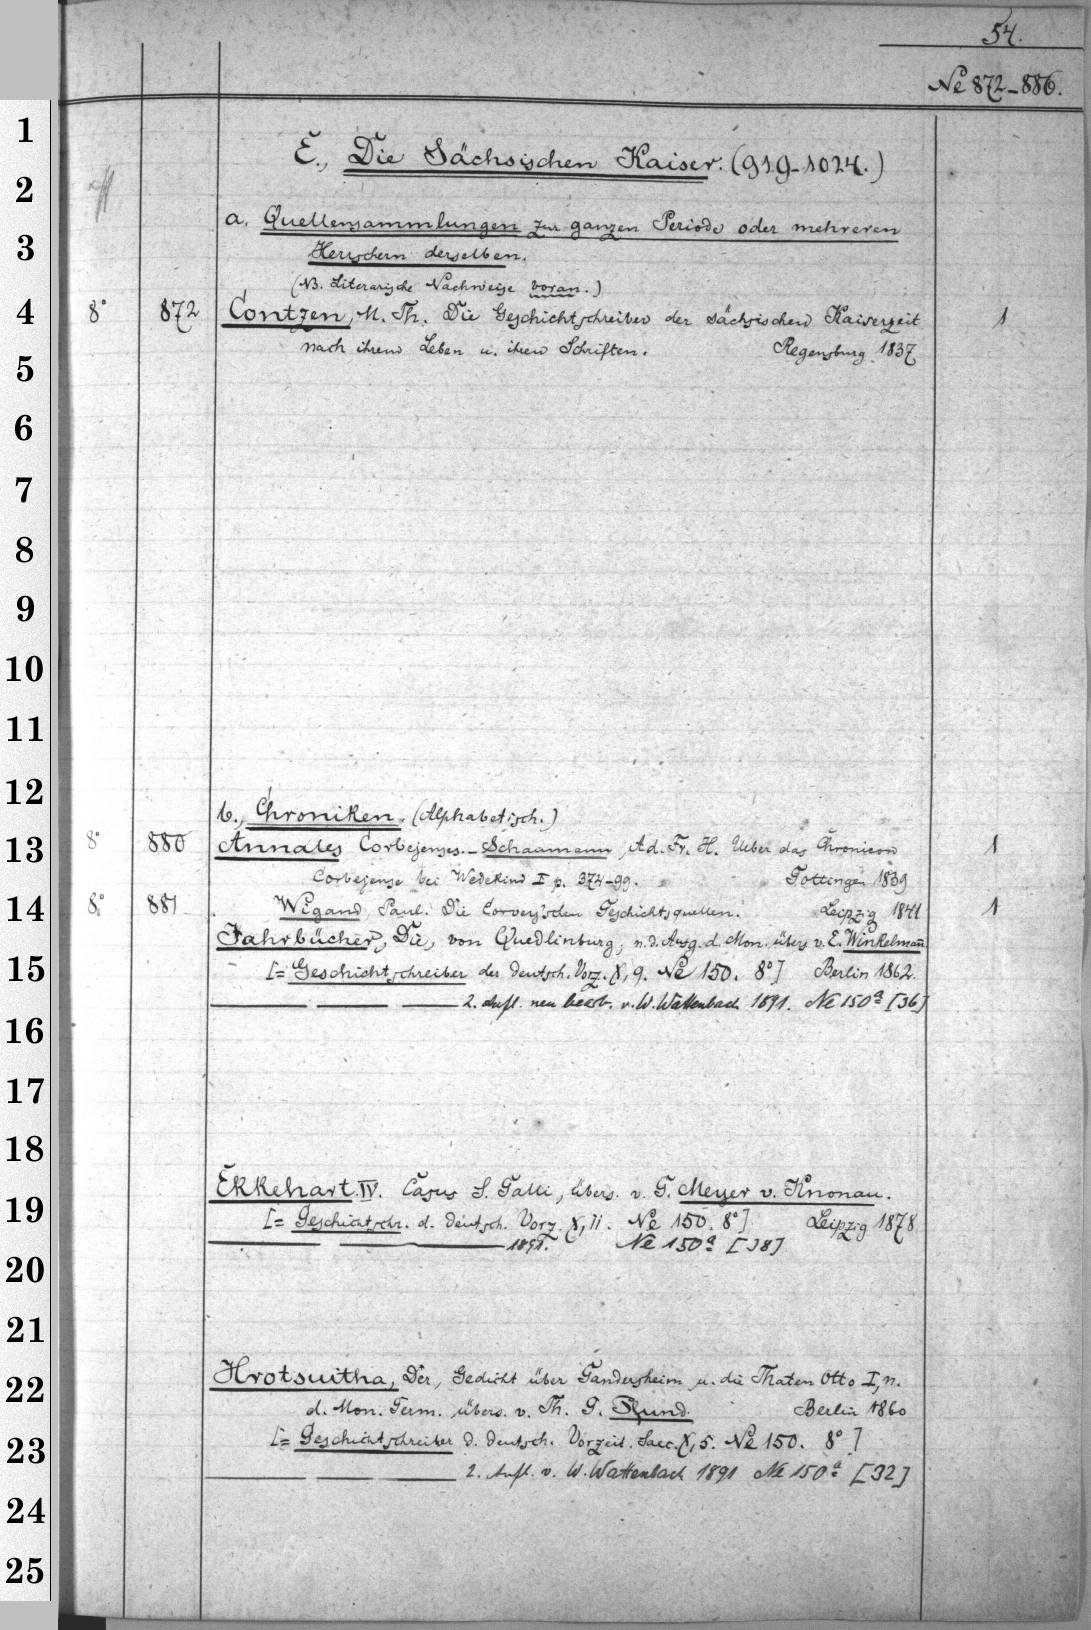 54.
Nº 872-886.
1
E., Die Sächsischen Kaiser. (919-1024.)
2
a. Quellensammlungen zur ganzen Periode oder mehreren
3
Herrschern derselben.
(NB. Literarische Nachweise voran.)
4 8° 872 Contzen, M. Th. Die Geschichtschreiber der sächsischen Kaiserzeit 1
nach ihrem Leben u. ihren Schriften. Regensburg 1837
5
6
7
8
9
10
11
12
b., Chroniken. (Alphabetisch.)
13 8° 880 Annales Corbejenses. - Schaumann, Ad. Fr. H. Ueber das Chronicon 1
Corbejense bei Wedekind I p. 374-99. Göttingen 1839
14 8° 881 Wigand, Paul. Die Corvey'schen Geschichtsquellen. Leipzig 1841 1
Jahrbücher, Die, von Quedlinburg, n. d. Ausg. d. Mon. übers v. E. Winkelmann
15 [= Geschichtschreiber der deutsch. Vorz. X, 9. Nº 150. 8°] Berlin 1862.
2. Aufl. neu bearb. v. W. Wattenbach 1891. Nº 150a [36]
16
17
18
Ekkehart IV. Casus S. Galli, übers. v. G. Meyer v. Knonau.
19 [= Geschichtschr. d. deutsch. Vorz. X, 11. Nº 150. 8°] Leipzig 1878
1891. Nº 150a [38]
20
21
Hrotsuitha, Der, Gedicht über Gandersheim u. die Thaten Otto I, n.
22
d. Mon. Germ. übers. v. Th. G. Pfund. Berlin 1860
23 [= Geschichtschreiber d. deutsch. Vorzeit. Saec. X, 5. Nº 150. 8°]
2. Aufl. v. W. Wattenbach 1891 Nº 150a [32]
24
25